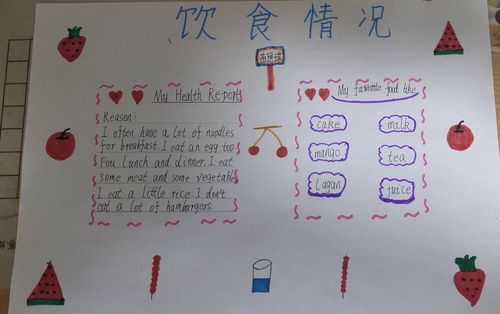 饮食情况
My Health Report
Reason.
I often hase a lot of noodles
for breakfast. I eat an egg too.
Fou lunch and dinner. I eat
some meat and some vegetable
I eat a little rice. I don't
eat a lot of hambargers.
My favorite food like
cake
milk
mango
tea
Lagan
juice